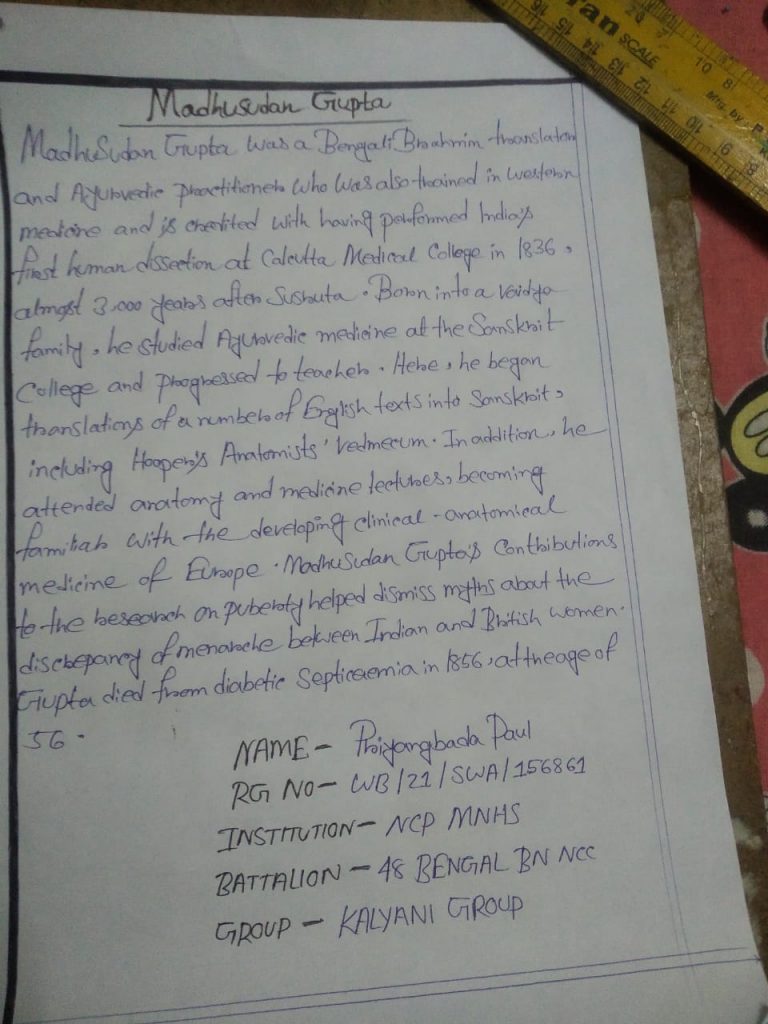 Madhusudan Gupta
MadhuSudan Gupta was a Bengali Brahmin translator
and Ayurvedic practitioner who was also trained in western
medicine and is credited with having performed India's
first human dissection at Calcutta Medical College in 1836,
almost 3,000 years after Susruta. Born into a Vaidya
family, he studied Ayurvedic medicine at the Sanskrit
College and progressed to teacher. Here, he began
translations of a number of English texts into Sanskrit,
including Hooper's Anatomists' Vedmecum. In addition, he
attended anatomy and medicine lectures, becoming
familiar with the developing clinical-anatomical
medicine of Europe. MadhuSudan Gupta's Contributions
to the research on puberty helped dismiss myths about the
discrepancy of menarche between Indian and British women.
Gupta died from diabetic Septicaemia in 1856, at the age of
56.
NAME - Priyangbada Paul
RG NO- WB/21/SWA/156861
INSTITUTION- NCP MNHS
BATTALION - 48 BENGAL BN NCC
GROUP - KALYANI GROUP
SCALE
16 15 14 13 12 11 10 9 8
10 8